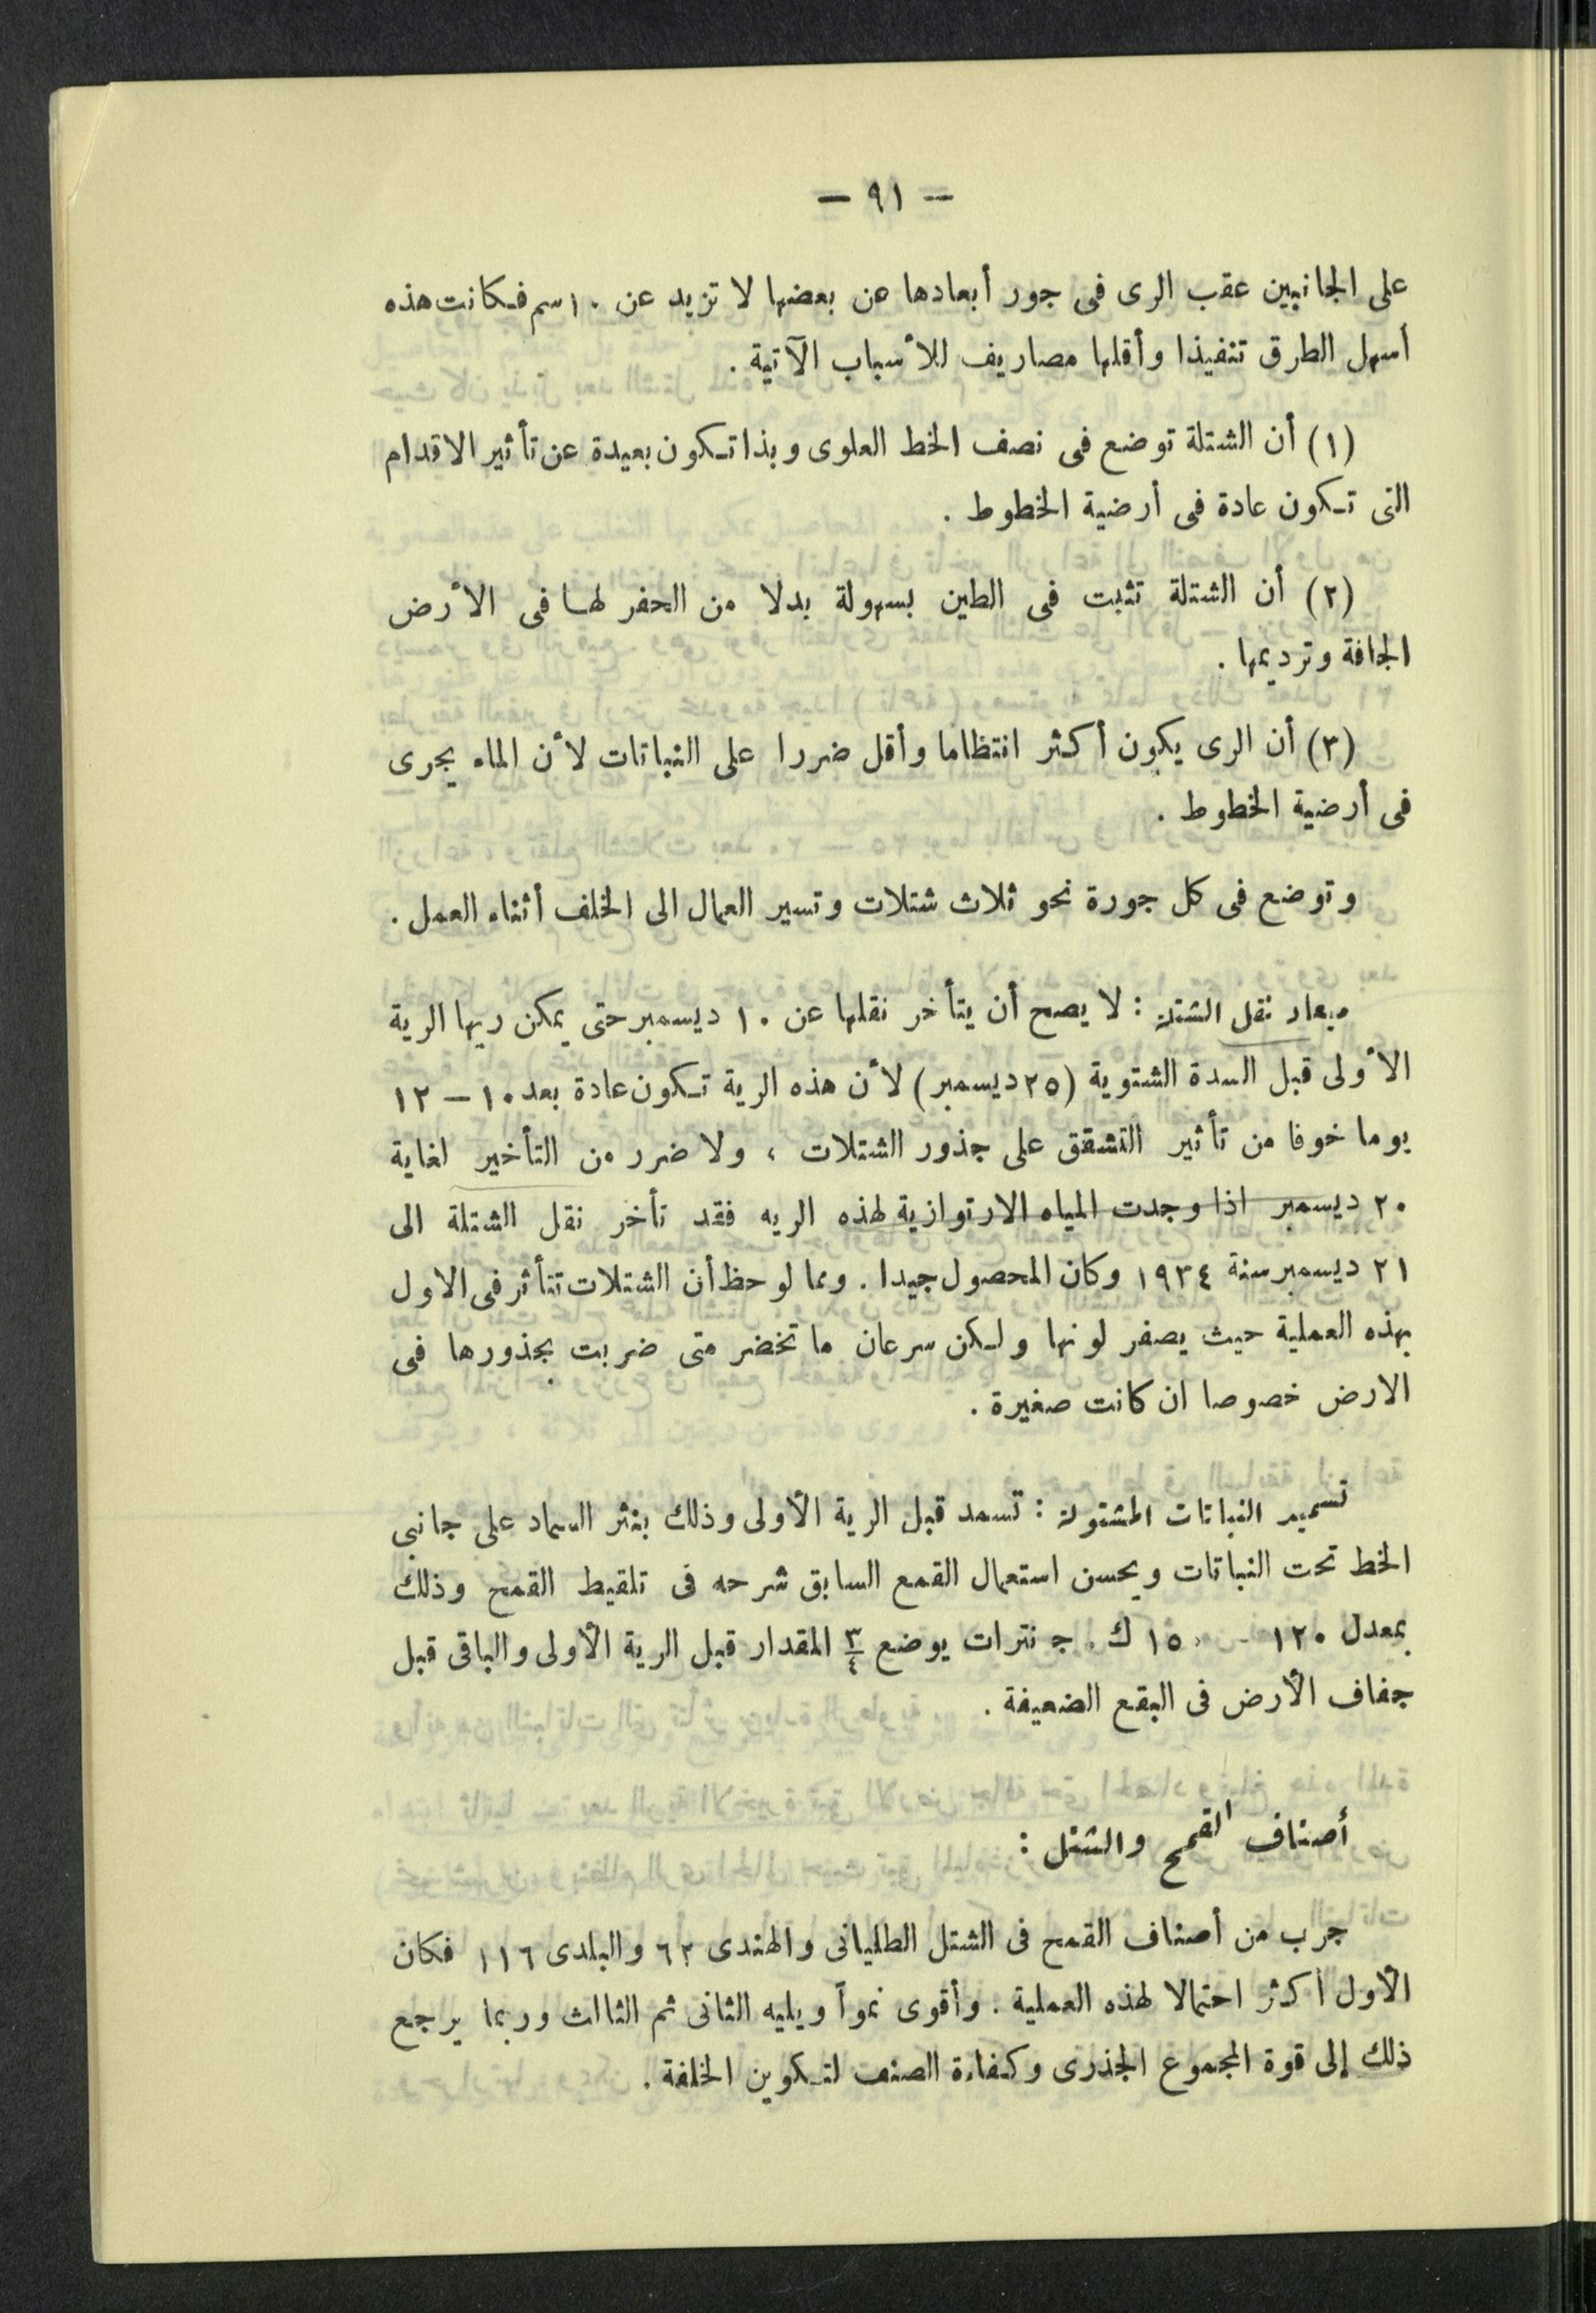 — ٩١ —
على الجانبين عقب الرى فى جور أبعادها عن بعضها لا تزيد عن ١٠ سم فكانت هذه
أسهل الطرق تنفيذا وأقلها مصاريف للأسباب الآتية .
(١) أن الشتلة توضع فى نصف الخط العلوى وبذا تكون بعيدة عن تأثير الاقدام
التى تكون عادة فى أرضية الخطوط .
(٢) أن الشتلة تثبت فى الطين بسهولة بدلا من الحفر لها فى الأرض
الجافة وترديمها .
(٣) أن الرى يكون أكثر انتظاما وأقل ضررا على النباتات لأن الماء يجرى
فى أرضية الخطوط .
وتوضع فى كل جورة نحو ثلاث شتلات وتسير العمال الى الخلف أثناء العمل .
ميعاد نقل الشتلة : لا يصح أن يتأخر نقلها عن ١٠ ديسمبر حتى يمكن ريها الرية
الأولى قبل السدة الشتوية (٢٥ ديسمبر) لأن هذه الرية تكون عادة بعد ١٠ — ١٢
يوما خوفا من تأثير التشقق على جذور الشتلات ، ولا ضرر من التأخير لغاية
٢٠ ديسمبر اذا وجدت المياه الارتوازية لهذه الريه فقد تأخر نقل الشتلة الى
٢١ ديسمبر سنة ١٩٣٤ وكان المحصول جيدا . ومما لوحظ أن الشتلات تتأثر فى الاول
بهذه العملية حيث يصفر لونها ولكن سرعان ما تخضر متى ضربت بجذورها فى
الارض خصوصا ان كانت صغيرة .
تسميد النباتات المشتولة : تسمد قبل الرية الأولى وذلك بنثر السماد على جانبى
الخط تحت النباتات ويحسن استعمال القمع السابق شرحه فى تلقيط القمح وذلك
بمعدل ١٢٠ - ١٥٠ ك . ج نترات يوضع ٣/٤ المقدار قبل الرية الأولى والباقى قبل
جفاف الأرض فى البقع الضعيفة .
أصناف القمح والشتل :
جرب من أصناف القمح فى الشتل الطليانى والهندى ٦٢ والبلدى ١١٦ فكان
الأول أكثر احتمالا لهذه العملية . وأقوى نمواً ويليه الثانى ثم الثالث وربما يرجع
ذلك إلى قوة المجموع الجذرى وكفاءة الصنف لتكوين الخلفة .